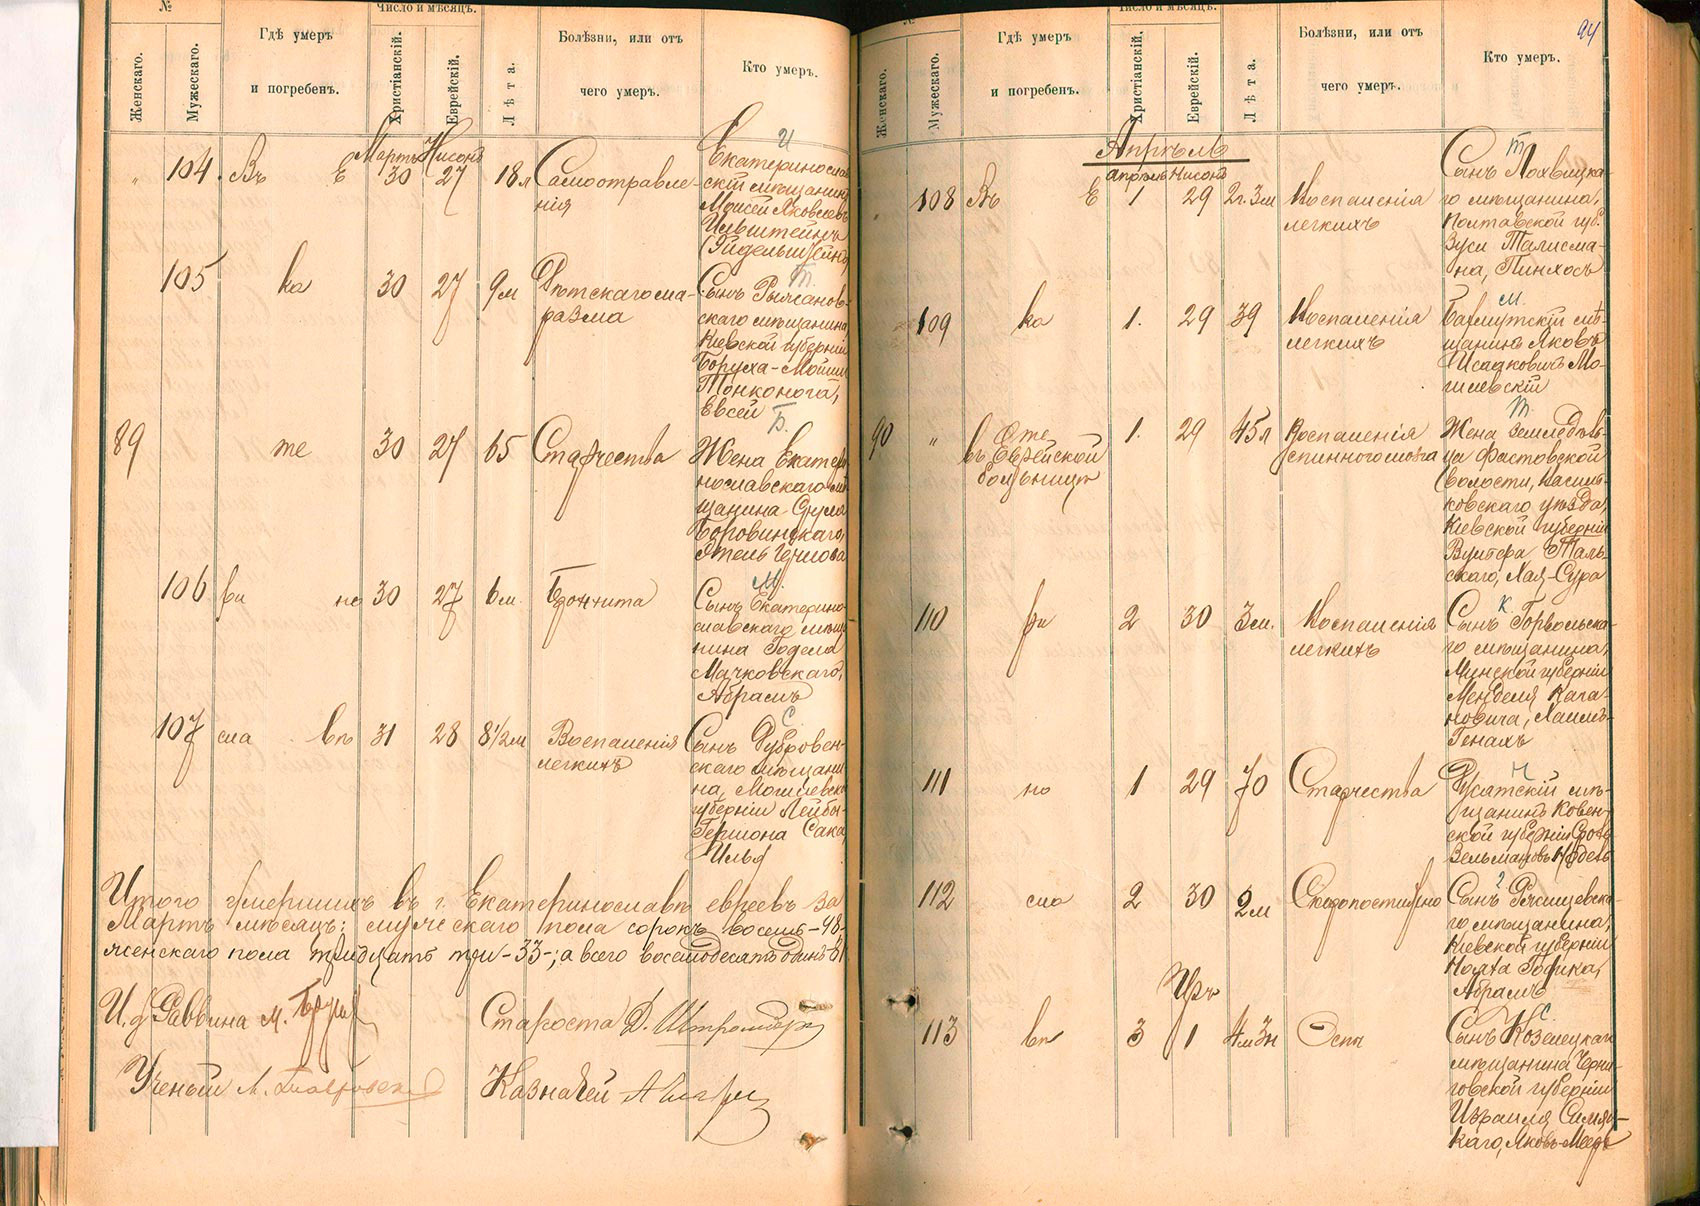 №
Число и мѣсяцъ.
Женскаго.
Мужескаго.
Гдѣ умеръ
и погребенъ.
Христіанскій.
Еврейскій.
Лѣта.
Болѣзни, или отъ
чего умеръ.
Кто умеръ.
И
Мартъ Нисонъ
„ 104. Въ Е 30 27 18 л Самоотравле-
нія
Екатеринослав
скій мѣщанинъ
Моисей Яковлевъ
(Эйдельштейнъ)
105 ка 30 27 9 м Дѣтскаго ма-
разма
Т.
Сынъ Рыжанов-
скаго мѣщанина
Кіевской губерніи
Боруха-Мойши
Тонконога,
Евсей
Б.
89 те 30 27 65 Старчества
Жена Екатери
нославскаго мѣ
щанина Сруля
Боровинскаго,
106 ри но 30 27 6 м. Бронхита
М.
Сынъ Екатерино-
славскаго мѣща
нина Годеля
Мачковскаго,
Абрамъ
107 сла вѣ 31 28 8½ м Воспаленія
легкихъ
С
Сынъ Дубровен-
скаго мѣщани
на, Могилевск
губерніи Лейбы-
Гершона Сака,
Илья
Итого умершихъ въ г. Екатеринославѣ евреевъ за
Мартъ мѣсяцъ: мужескаго пола сорокъ восемь -48-
женскаго пола тридцать три -33-; а всего восемьдесятъ одинъ 81
И. д Раввина М.
Староста Д. Штромберг
Ученый Л.
Казначей А
94
№
Число и мѣсяцъ.
Женскаго.
Мужескаго.
Гдѣ умеръ
и погребенъ.
Христіанскій.
Еврейскій.
Лѣта.
Болѣзни, или отъ
чего умеръ.
Кто умеръ.
Апрѣль
апрѣль Нисонъ
108 Въ Е 1 29 2 г. 3 м Воспаленія
легкихъ
Т
Сынъ Лохвицка-
го мѣщанина,
Полтавской губ.
Зуси Талисма-
на, Пинхосъ
109 ка 1. 29 39 Воспаленія
легкихъ
М.
Бахмутскій мѣ-
щанинъ Яковъ
Исааковичъ Мо-
гилевскій
90 „ те
въ Еврейской
больницѣ
1. 29 45 л Воспаленія
спинного мозга
Т.
Жена земледѣль-
ца Фастовской
волости, Василь-
ковскаго уѣзда,
Кіевской губерніи
Вульфа Таль-
скаго, Хая-Сура
110 ри 2 30 3 м. Воспаленія
легкихъ
К.
Сынъ Горвольска-
го мѣщанина,
Минской губерніи
Менделя Кага-
новича, Хаимъ-
Генахъ
111 но 1 29 70 Старчества
Н
мѣ-
щанинъ Ковен-
ской губерніи
Зельмановъ
112 сла 2 30 2 м Скоропостижно
Г
Сынъ Ржищевска-
го мѣщанина,
Кіевской губерніи
Абрамъ
Іръ
113 вѣ 3 1 4 м 3 н Оспы
С.
Сынъ Козелецкаго
мѣщанина Черни-
говской губерніи
Израиля
каго, Яковъ-Мееръ